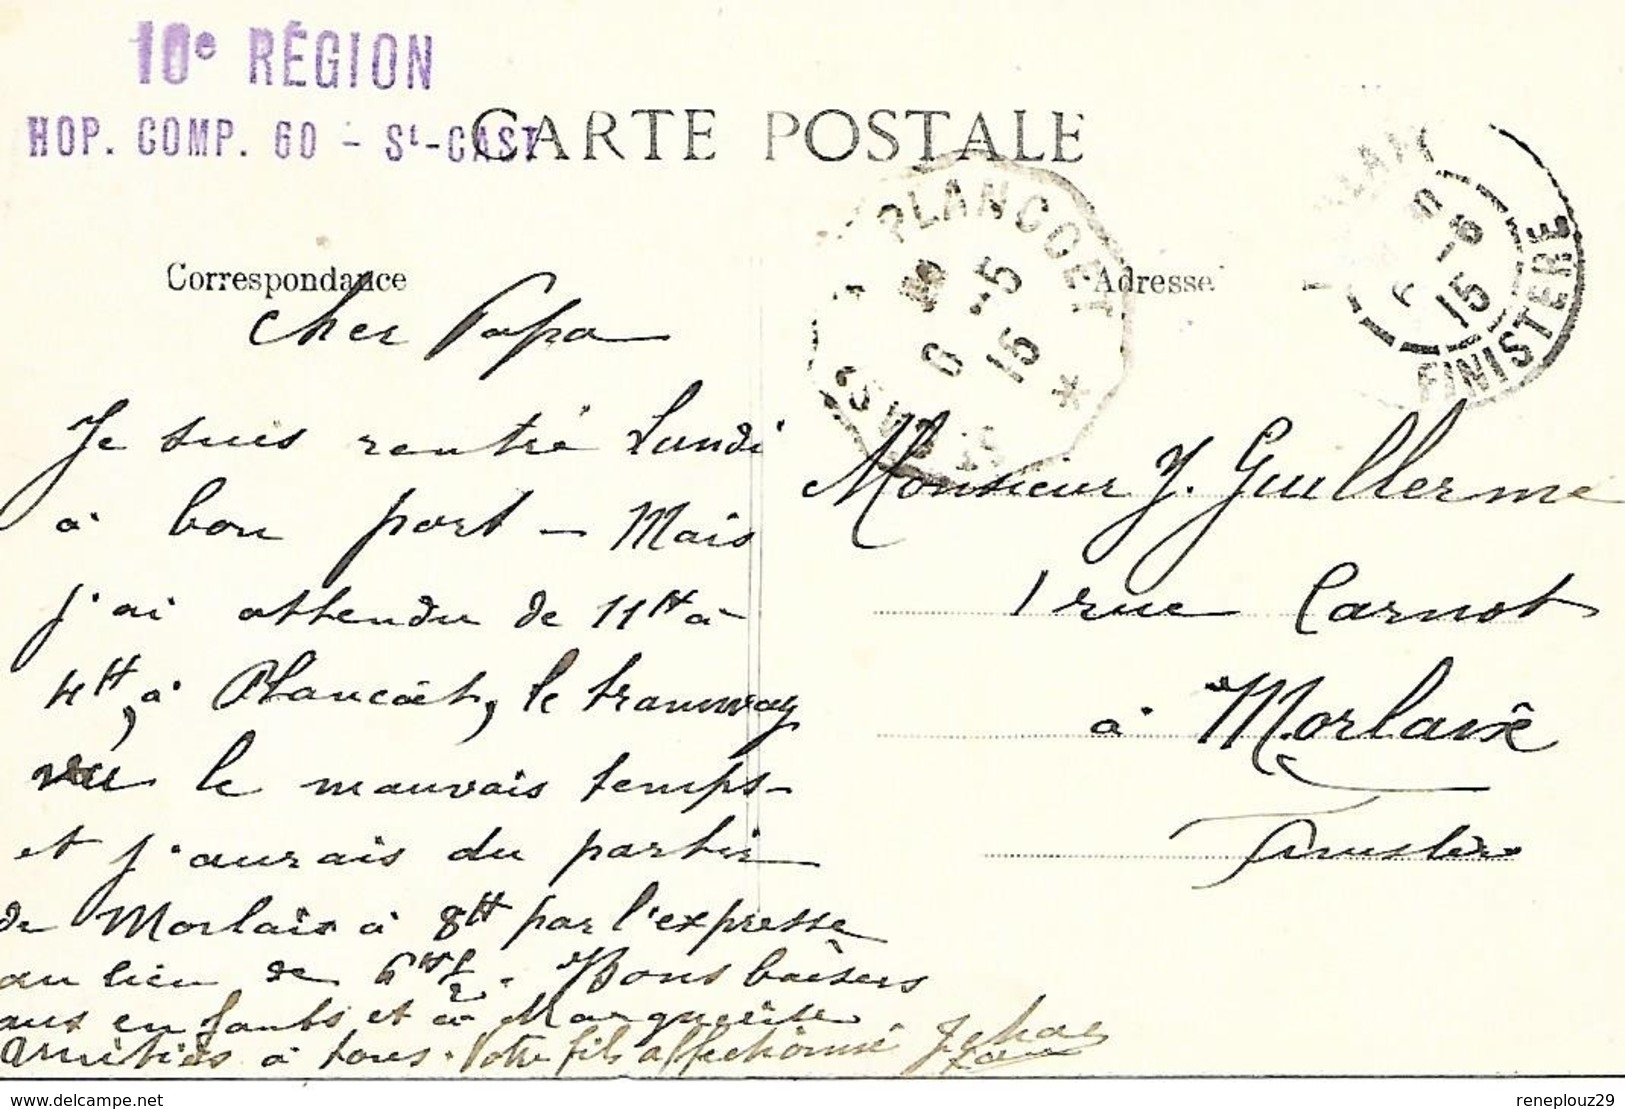 10e RÉGION
HOP. COMP. 60 - St-CAST
CARTE POSTALE
PLANCOET
* 5
6 15
6 -6
15
FINISTERE
Correspondance
Adresse
Cher Papa
Je suis rentré Lundi
à bon port - Mais
j'ai attendu de 11H à
4H, à Plancoët, le tramway
vu le mauvais temps-
et j'aurais du partir
de Morlaix à 8H par l'expresse
au lieu de 6H 1/2. Bons baisers
aux enfants et à Marguerite.
Amitiés à tous. Votre fils affectionné
Monsieur J. Guillerme
1 rue Carnot
à Morlaix
Finistère
delcampe.net
reneplouz29